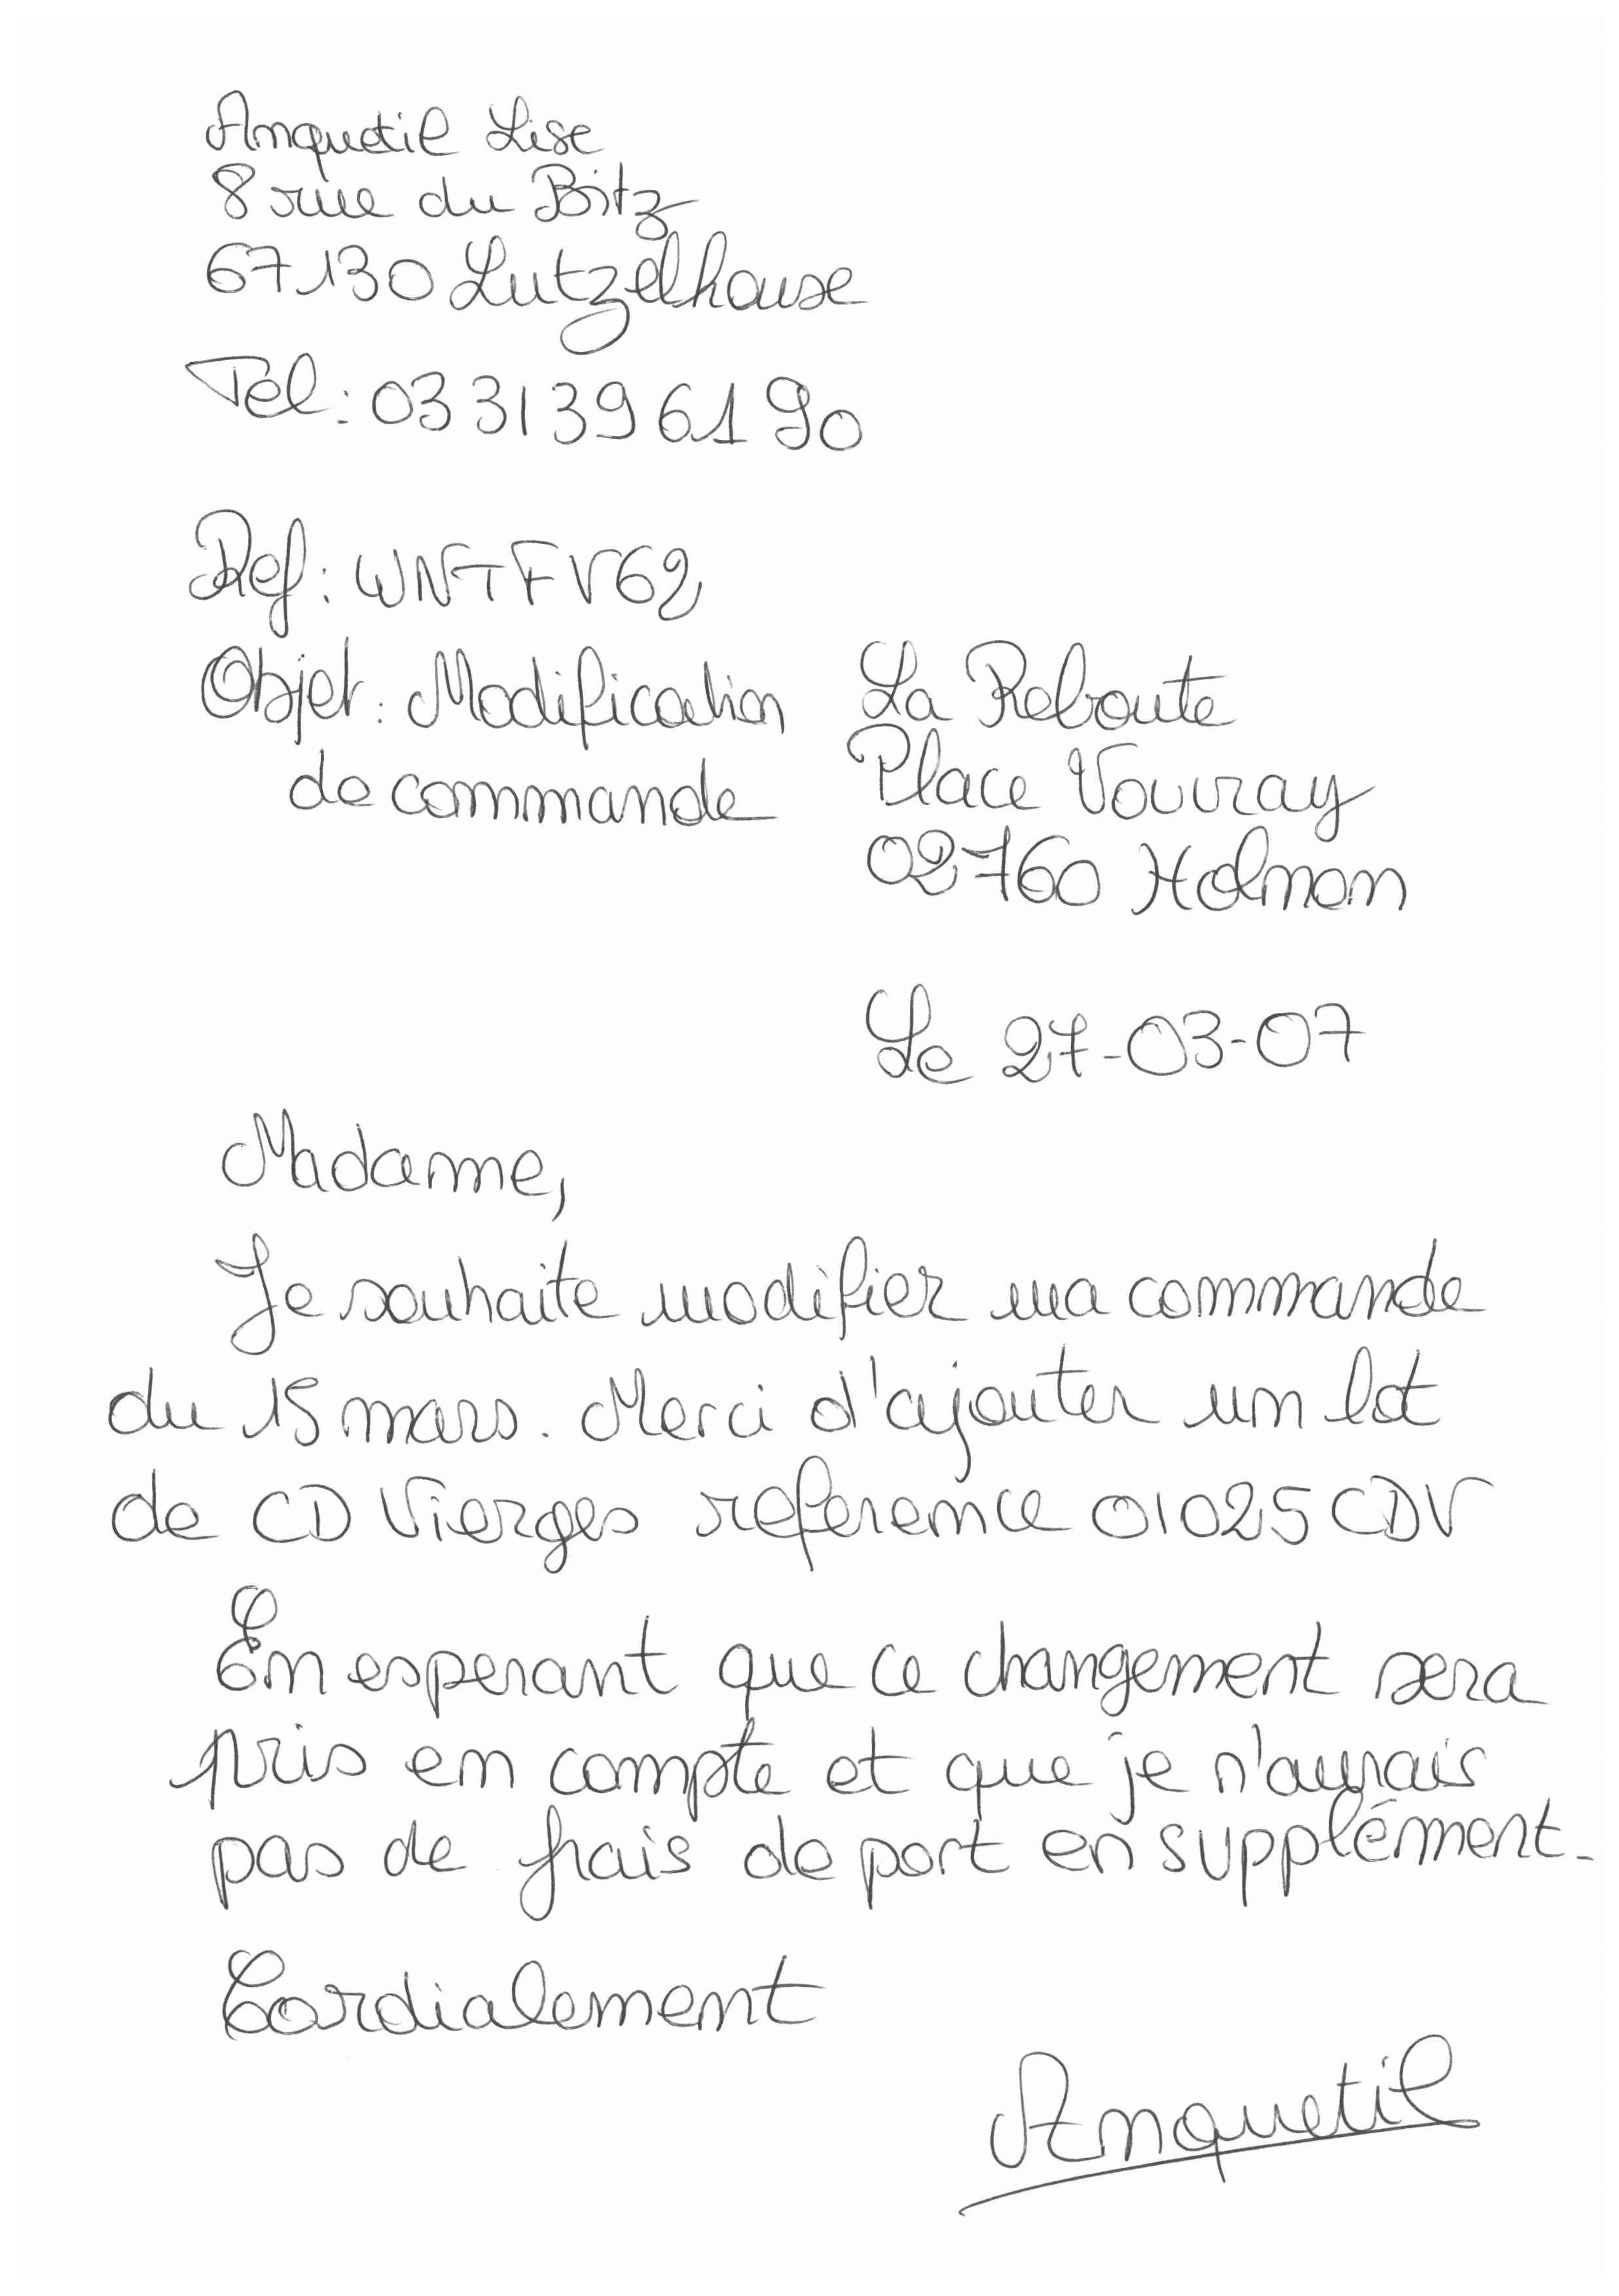 Anquetil Lise
8 rue du Bitz
67130 Lutzelhouse
Tél : 03 31 39 61 90
Ref : WNTFV62
Objet : Modification
de commande
La Reboute
Place Vouvray
02760 Holnon
Le 27-03-07
Madame,
Je souhaite modifier ma commande
du 15 mars. Merci d'ajouter un lot
de CD Vierges reference 01025CDV
En esperant que ce changement sera
pris en compte et que je n'aurais
pas de frais de port en supplément.
Cordialement
Anquetil